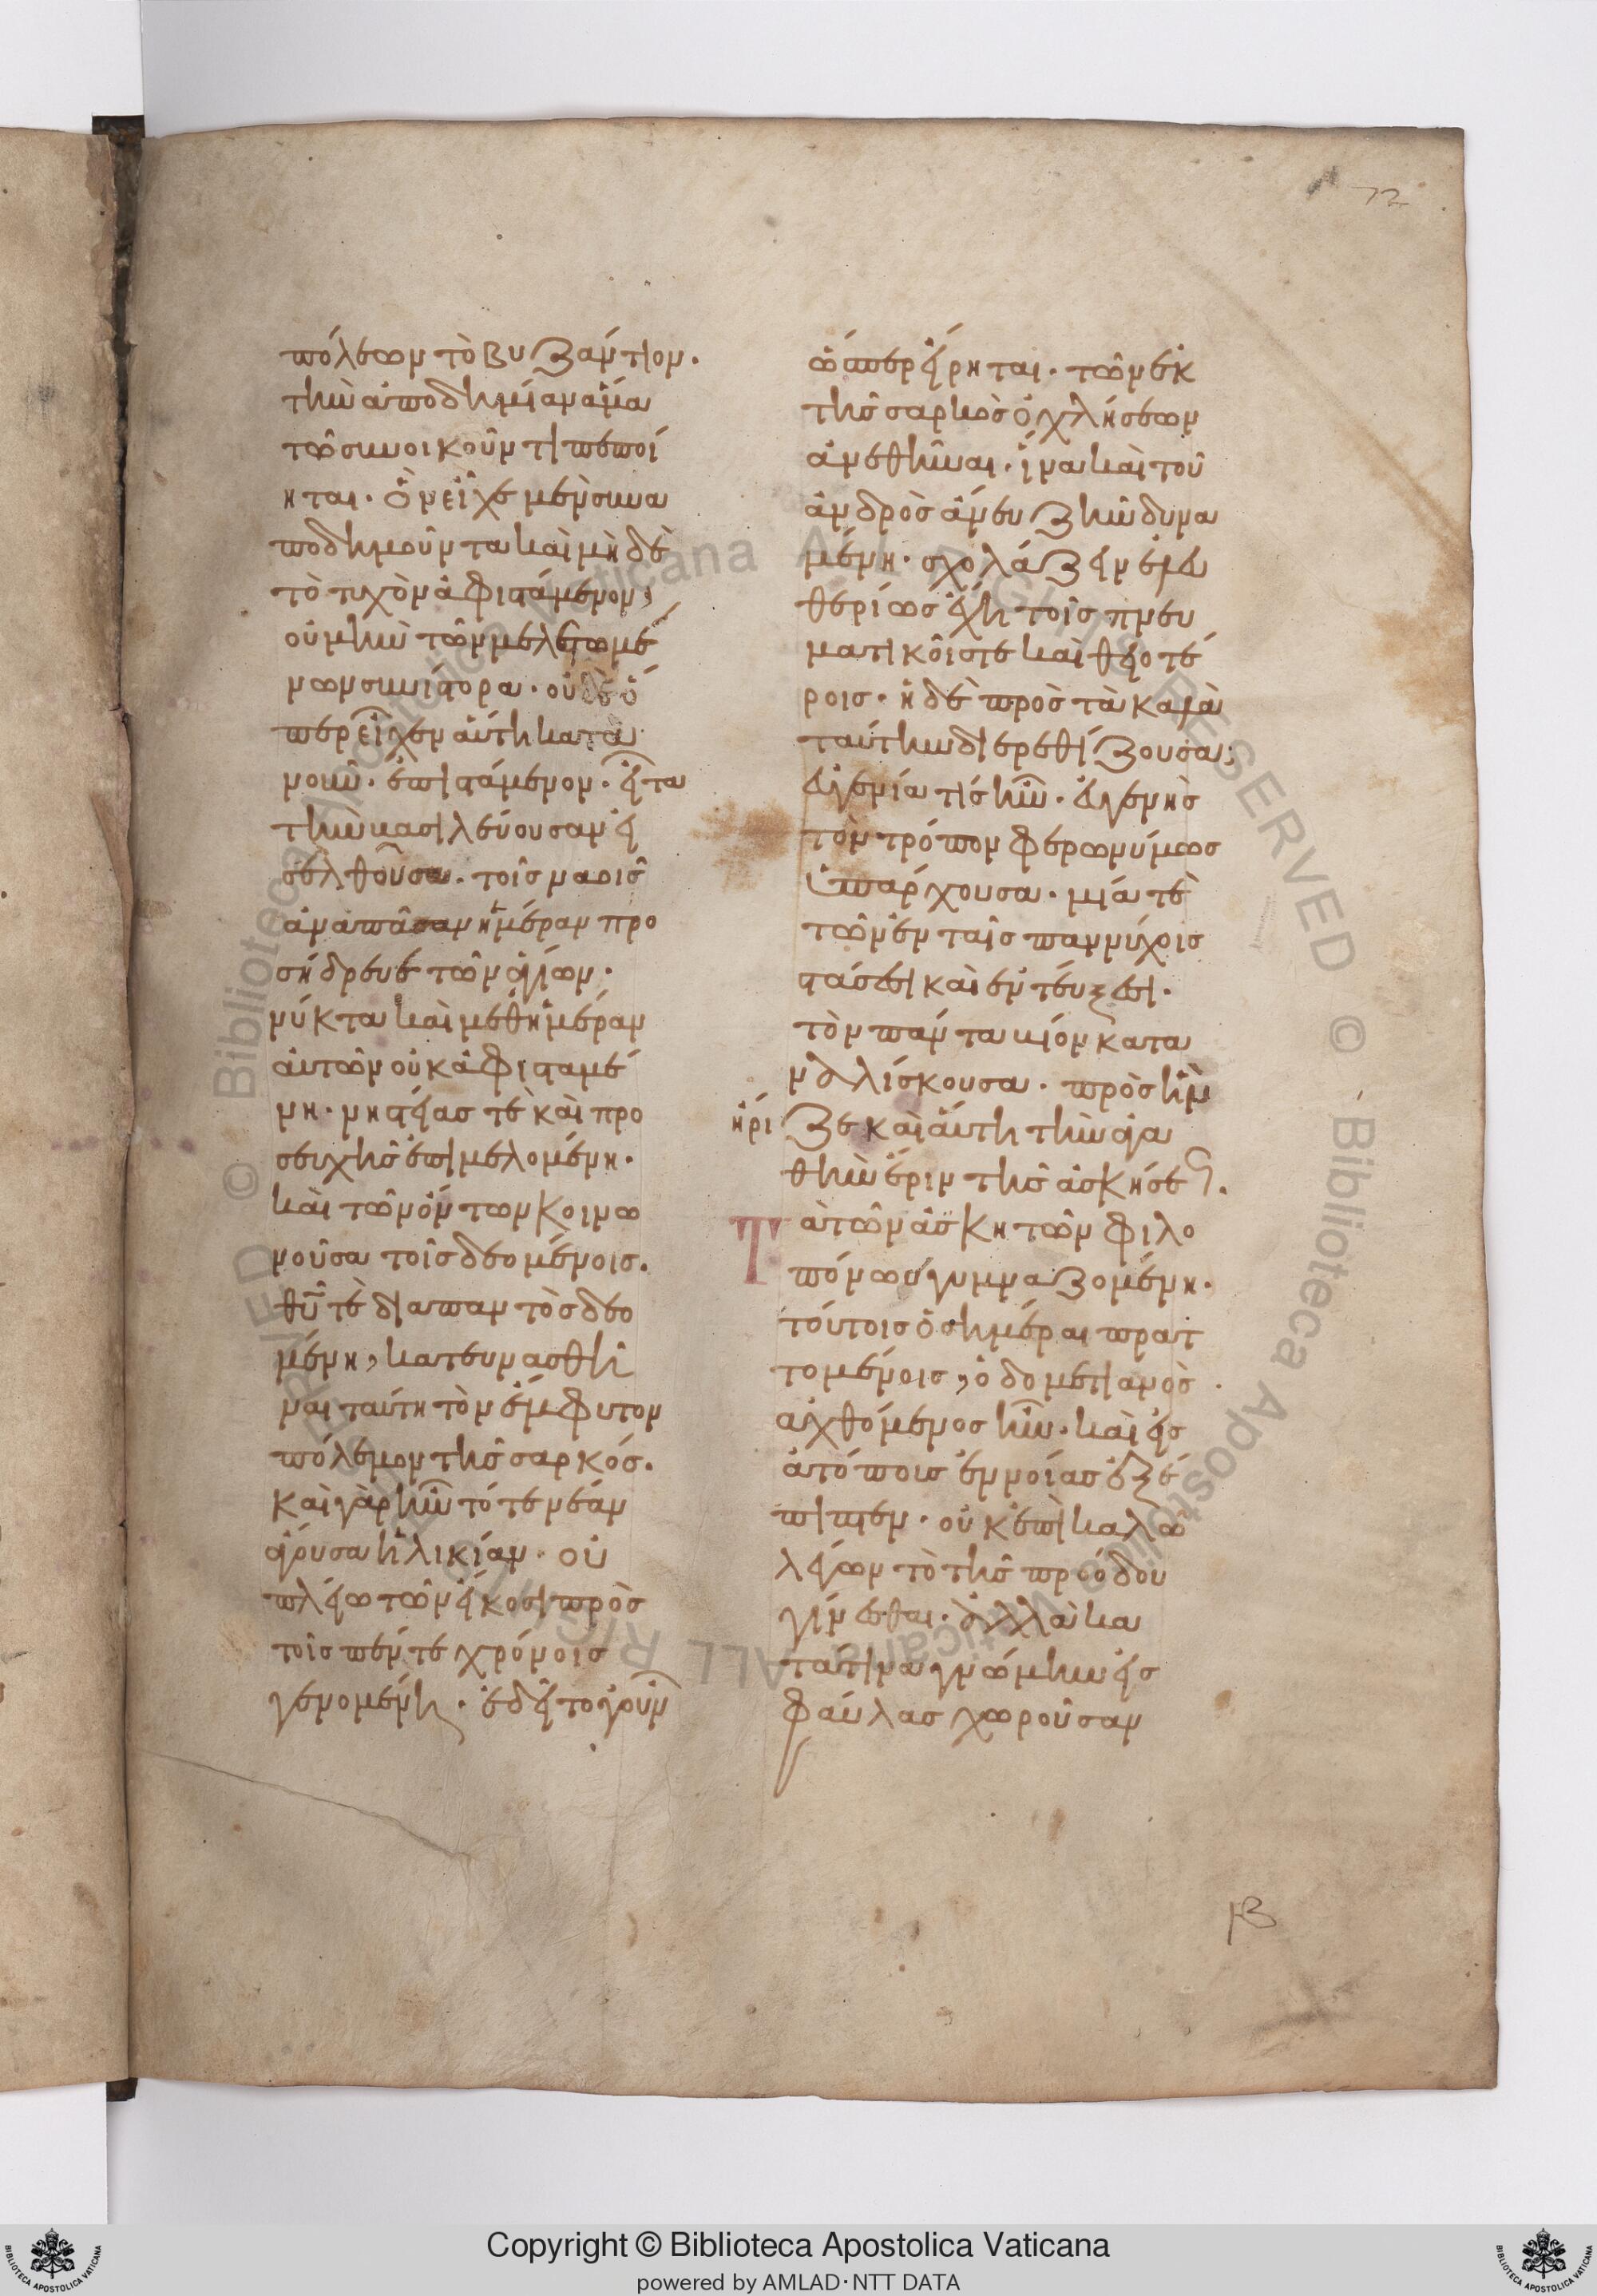 72
πόλεων τὸ Βυζάντιον·
τὴν ἀποδημίαν ἅμα
τῶ συνοικοῦντι πεποί
ηται· ὃν εἶχε μὲν συνα
ποδημοῦντα καὶ μηδὲ
τὸ τυχὸν ἀφιστάμενον,
οὐ μὴν τῶν μελετωμέ
νων συνίστορα· οὐδ' ὁ
περ εἶχεν αὕτη κατὰ
νοῦν· ἐπιστάμενον· εἶτα
τὴν βασιλεύουσαν εἰ
σελθοῦσα· τοῖς ναοῖς
ἀνα πᾶσαν ἡμέραν προ
σήδρευε τῶν ἁγίων·
νύκτα καὶ μεθημέραν
αὐτῶν οὐκ ἀφισταμέ
νη· νηστείας τὲ καὶ προ
σευχῆς ἐπιμελομένη·
καὶ τῶν ὄντων κοινω
νοῦσα τοῖς δεομένοις·
θῦ τὲ διαπαντὸς δεο
μένη, κατευνασθῆ
ναι ταύτη τὸν ἔμφυτον
πόλεμον τῆς σαρκός·
καὶ γὰρ ἦν τότε νεάν
ἄγουσα ἡλικίαν· οὐ
πλείω τῶν εἴκοσι πρὸς
τοῖς πέντε χρόνοις
γενομένη· ἐδεῖτο γοῦν
ὥσπερ εἴρηται· τῶν ἐκ
τῆς σαρκὸς ὀχλήσεων
ἀνεθῆναι· ἵνα καὶ τοῦ
ἀνδρὸς ἄνευ ζῆν δυνα
μένη· σχολάζειν ἐλευ
θερίως ἔχη τοῖς πνευ
ματικοῖς τε καὶ θειοτέ
ροις· ἡ δὲ πρὸς τὰ καλὰ
ταύτην διερεθίζουσα;
εὐγενία τίς ἦν· εὐγενὴς
τὸν τρόπον φερωνύμως
ὑπάρχουσα· μία τὲ
τῶν ἐν ταῖς παννύχοις
στάσεσι καὶ ἐντεύξεσι·
τὸν πάντα βίον κατα
ναλίσκουσα· πρὸς ἣν
ἤρι ζε καὶ αὕτη τὴν ἀγα
θὴν ἔριν τῆς ἀσκήσεως·
Τὰ τῶν ἀσκητῶν φιλο
πόνως γυμναζομένη·
τούτοις ὁσημέραι πρατ
τομένοις, ὁ δομετιανὸς
ἀχθόμενος ἦν· καὶ εἰς
ἀτόπους ἐννοίας ἐξέ
πιπτεν· οὐκ ἐπὶ καλῶ
λέγων τὸ τῆς προόδου
γίνεσθαι· ἀλλὰ κα
τά τινα γνώμην εἰς
φαύλας χωροῦσαν
Copyright © Biblioteca Apostolica Vaticana
powered by AMLAD·NTT DATA